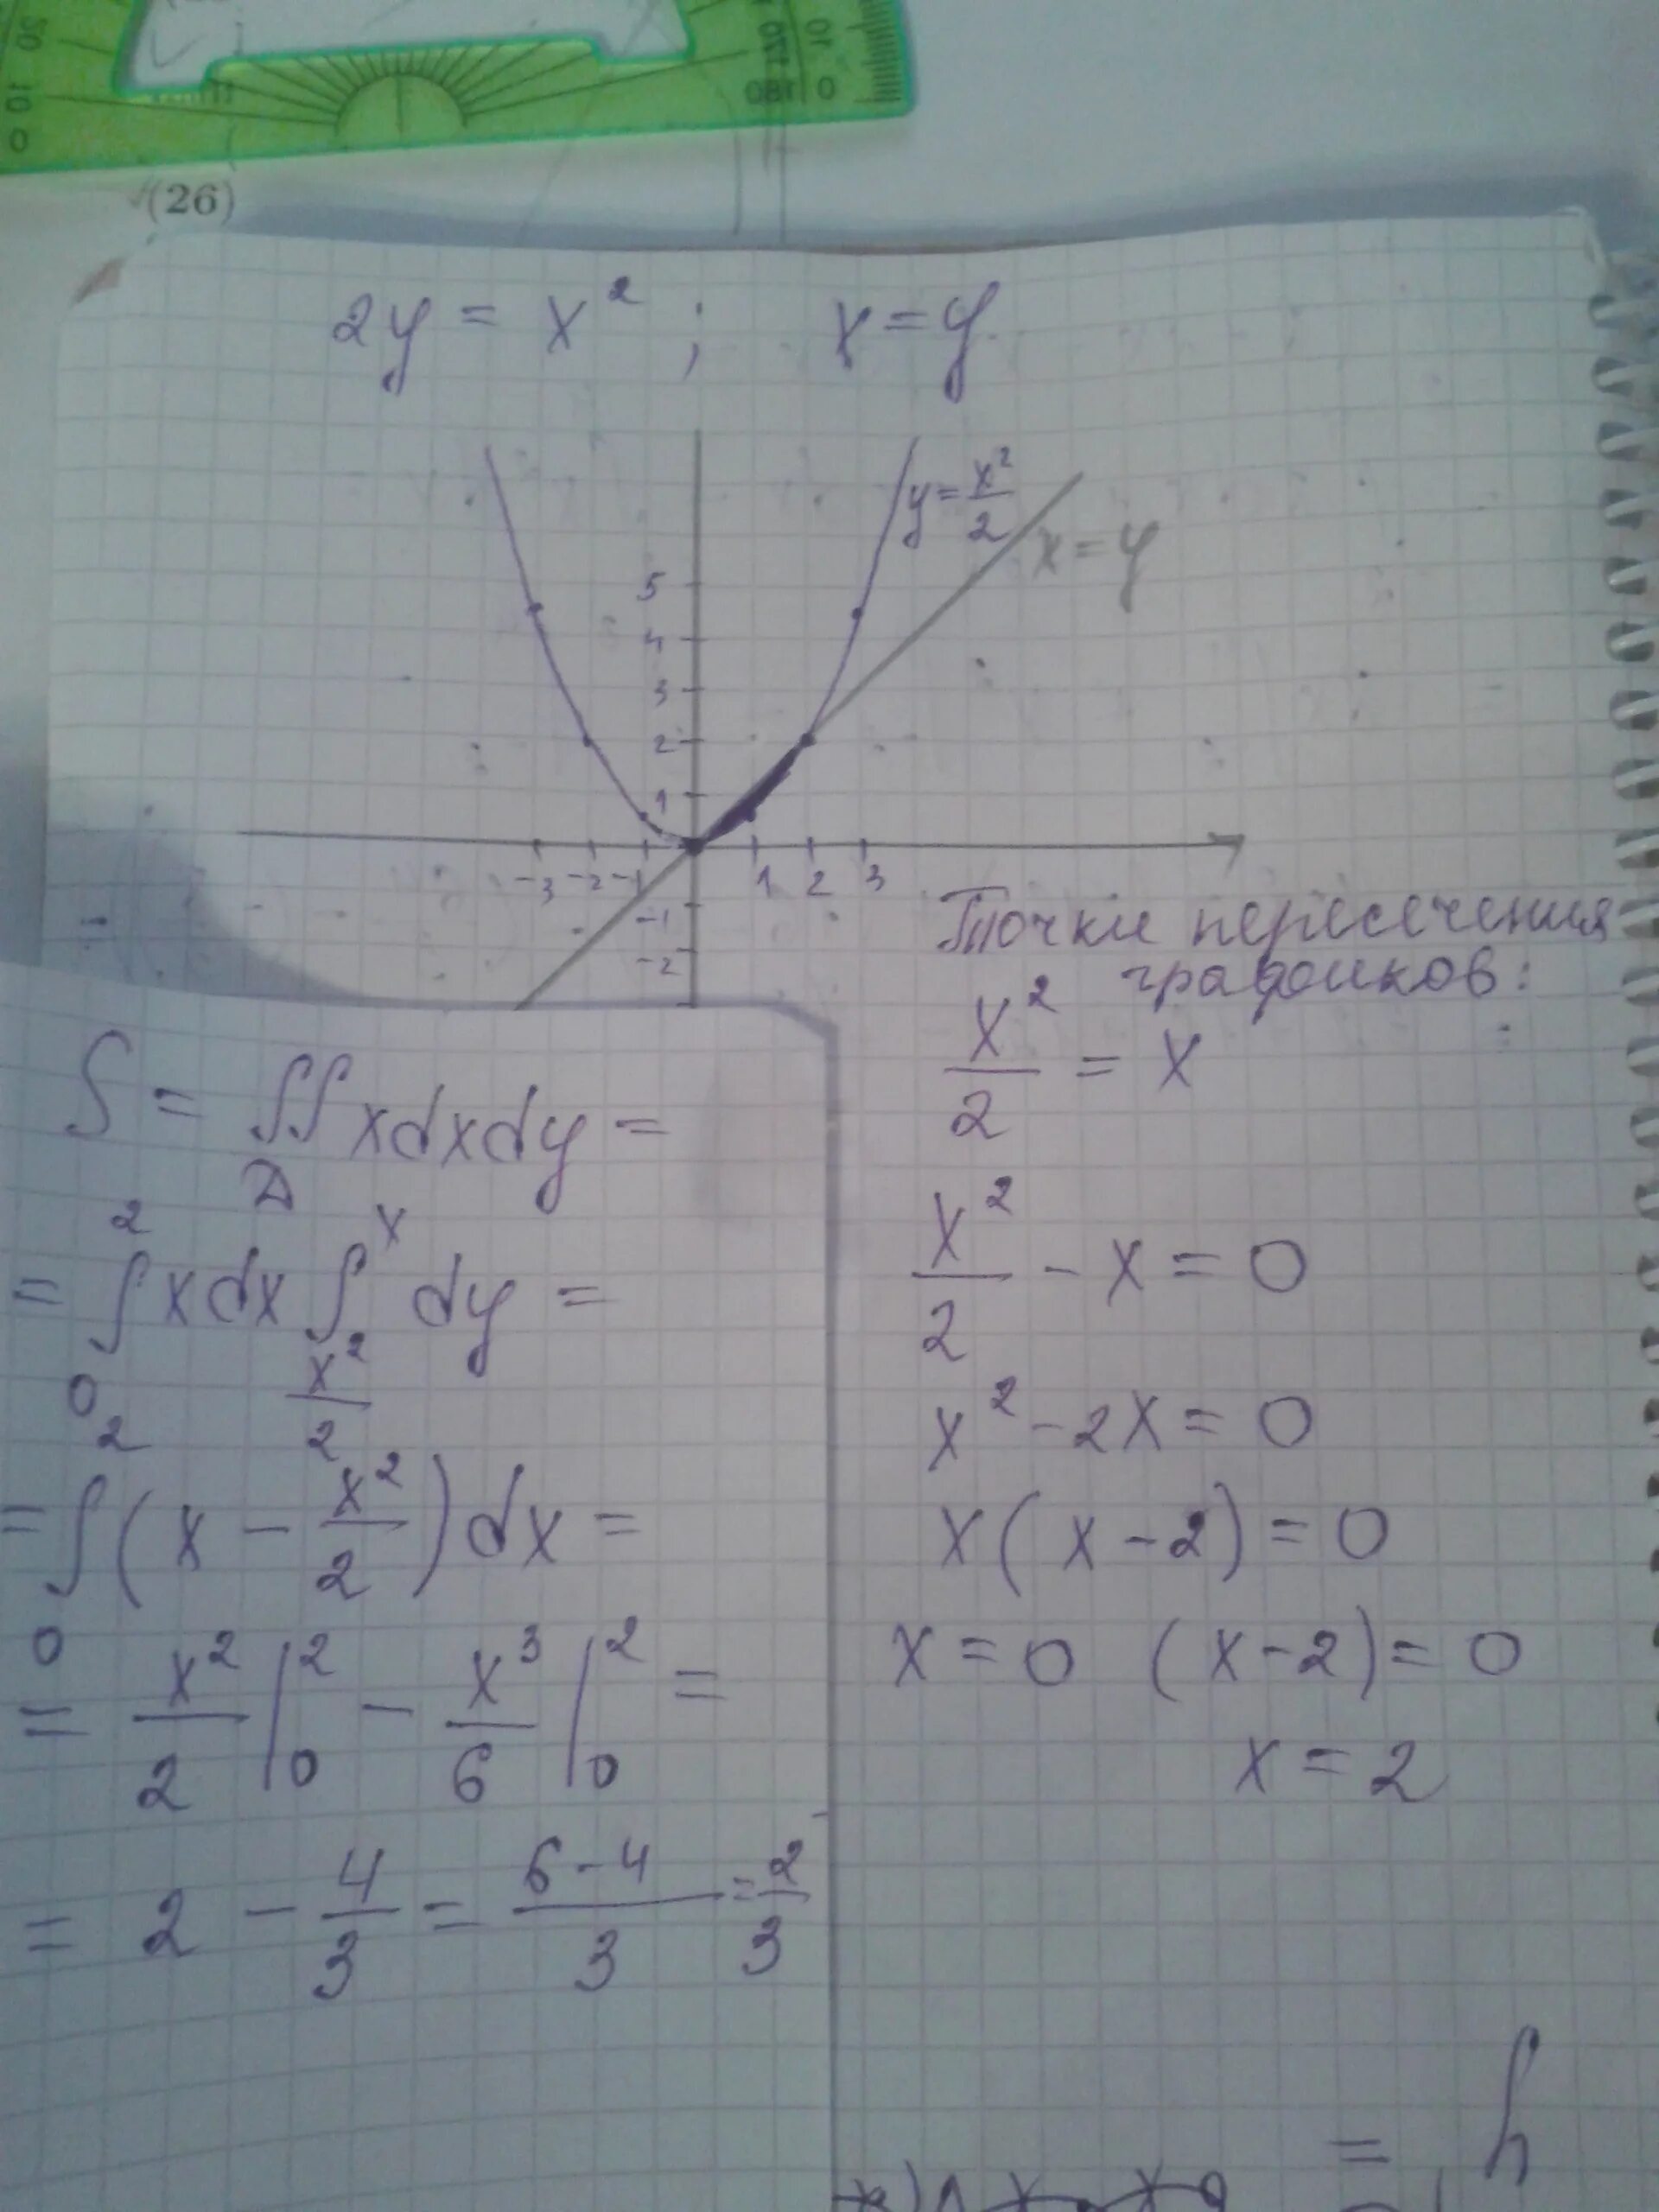 20
10
0
170
180
10
0
(26)
2y = x² ; x = y
y = x²/2
x = y
5
4
3
2
1
-3 -2 -1 1 2 3
-1
-2
Точки пересечения
графиков:
x²/2 = x
x²/2 - x = 0
x² - 2x = 0
x(x-2) = 0
x = 0 (x-2) = 0
x = 2
S = ∬_D x dx dy =
= ∫₀² x dx ∫_{x²/2}^x dy =
= ∫₀² (x - x²/2) dx =
= x²/2 |₀² - x³/6 |₀² =
= 2 - 4/3 = (6-4)/3 = 2/3
=